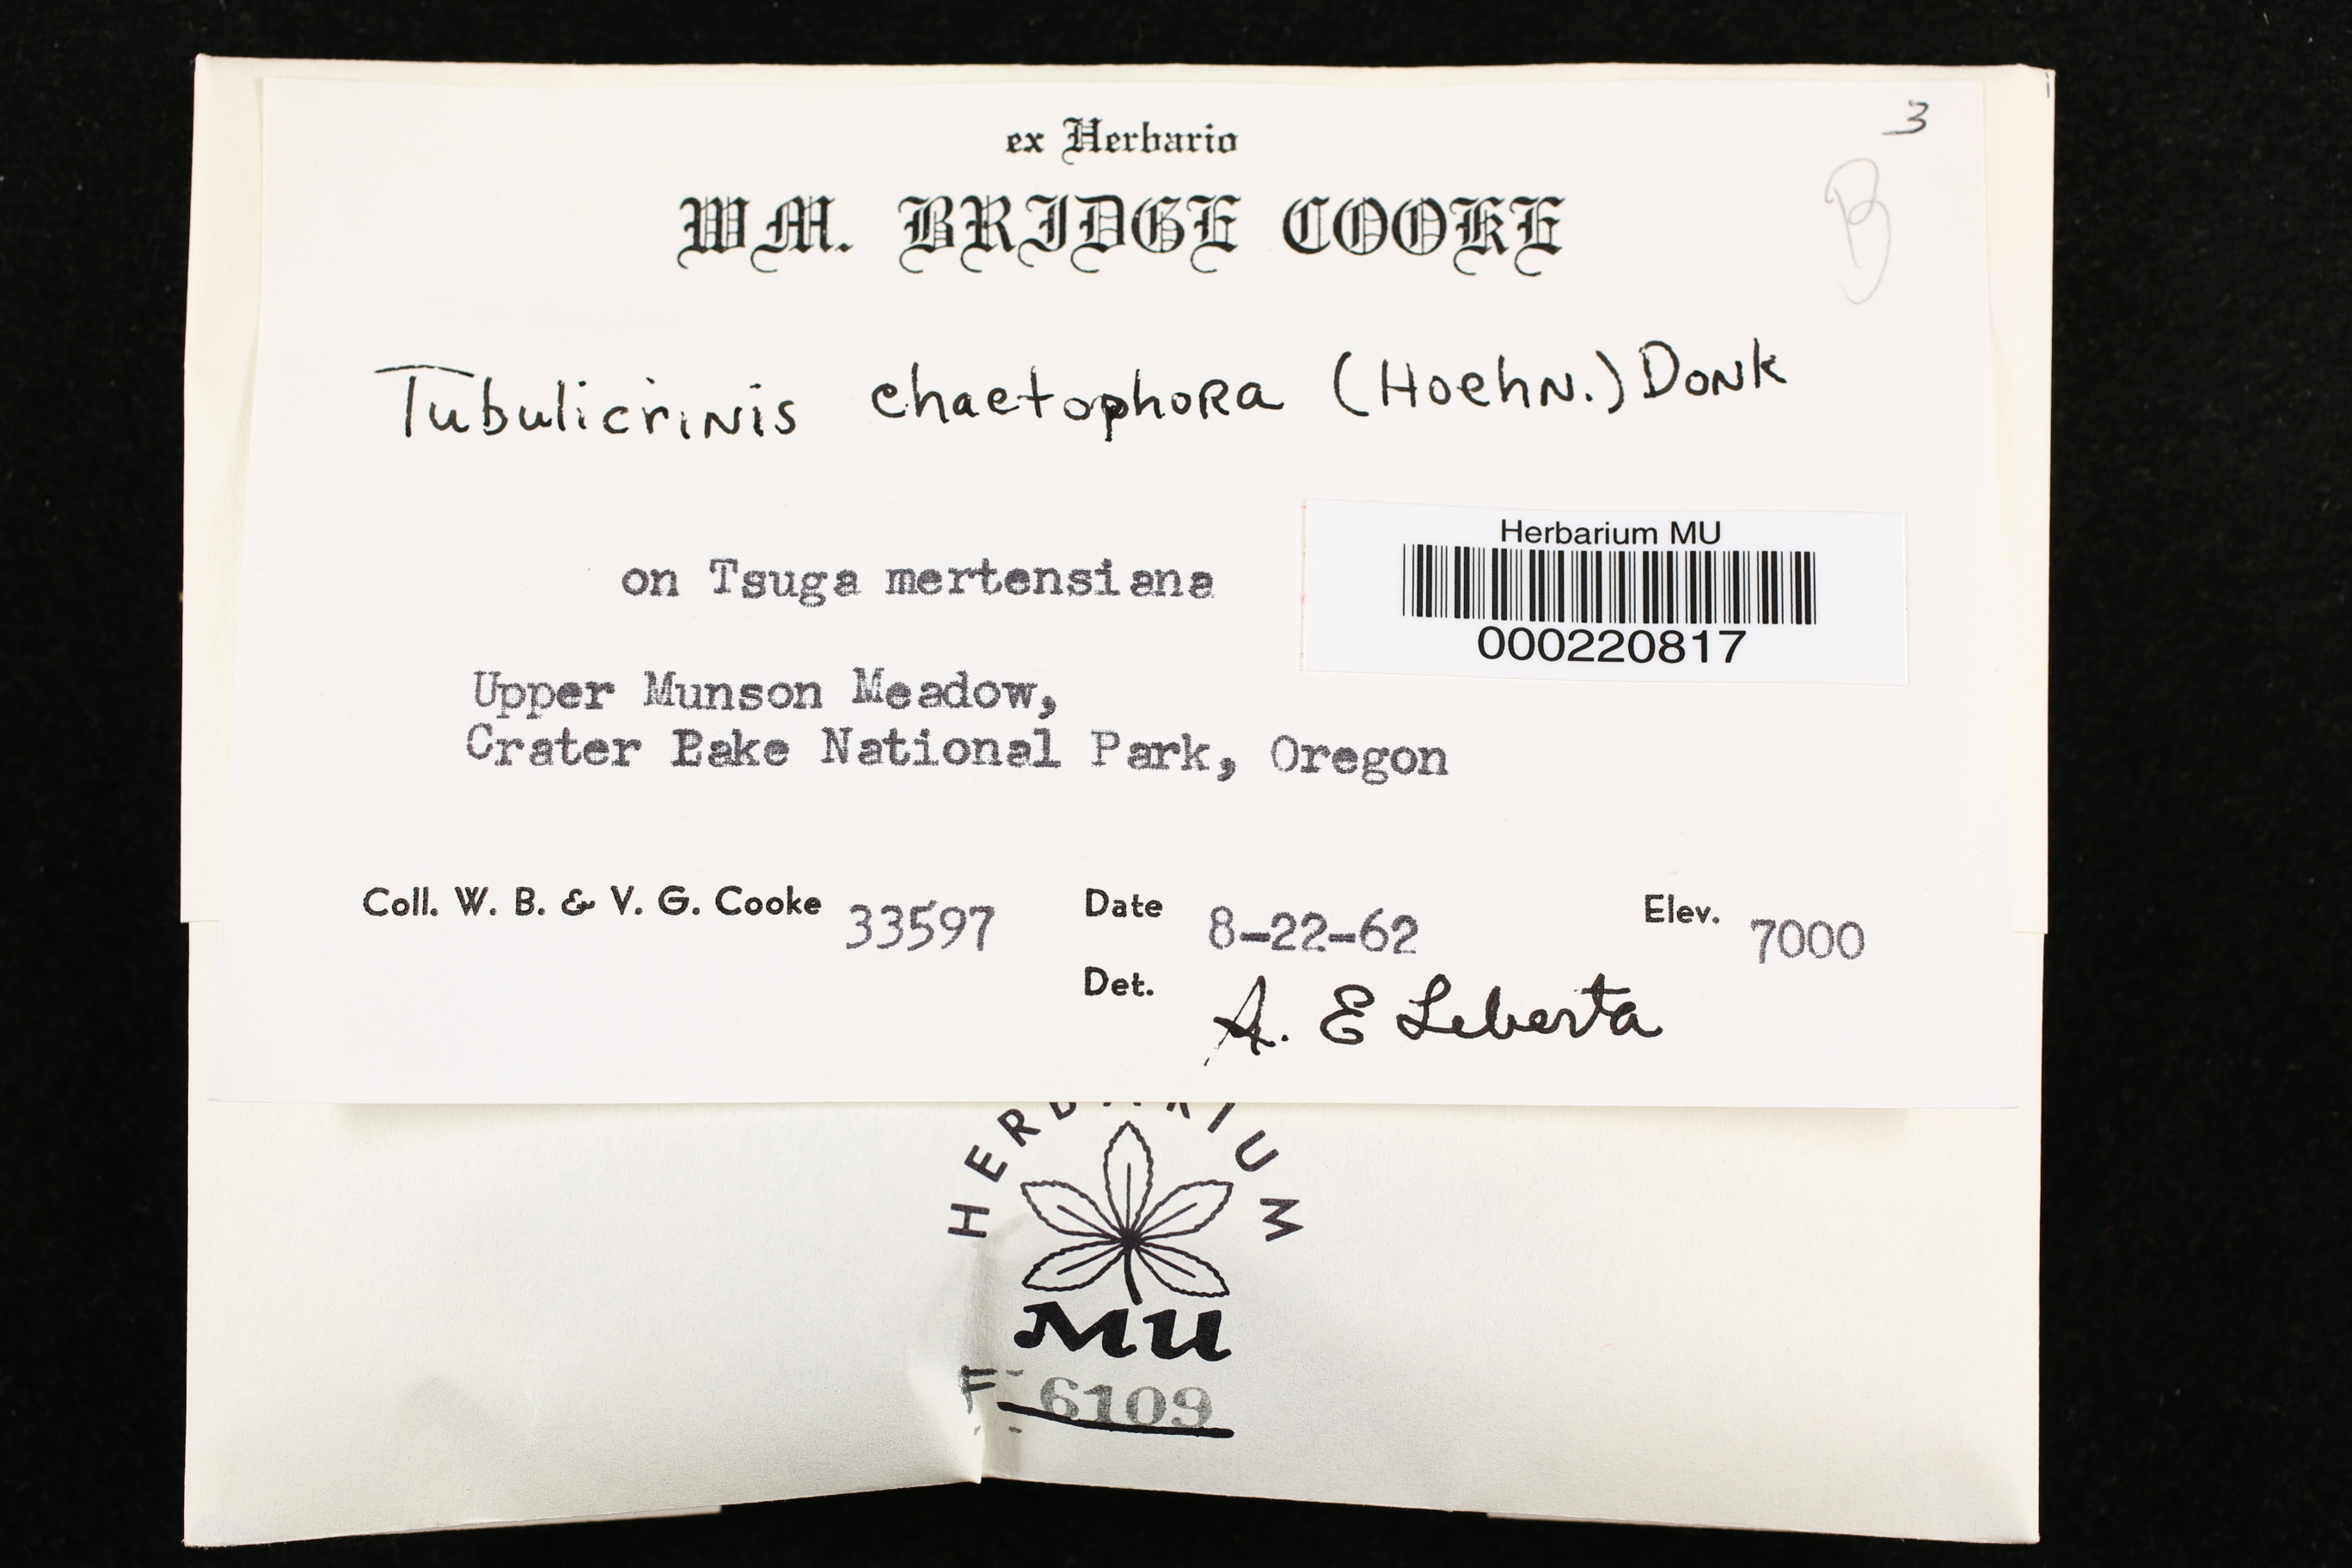 3
ex Herbario
B
WM. BRIDGE COOKE
Tubulicrinis chaetophora (Hoehn.) Donk
on Tsuga mertensiana
Herbarium MU
000220817
Upper Munson Meadow,
Crater Lake National Park, Oregon
Coll. W. B. & V. G. Cooke 33597 Date 8-22-62 Elev. 7000
Det. A. E Liberta
HERBARIUM
MU
F- 6109